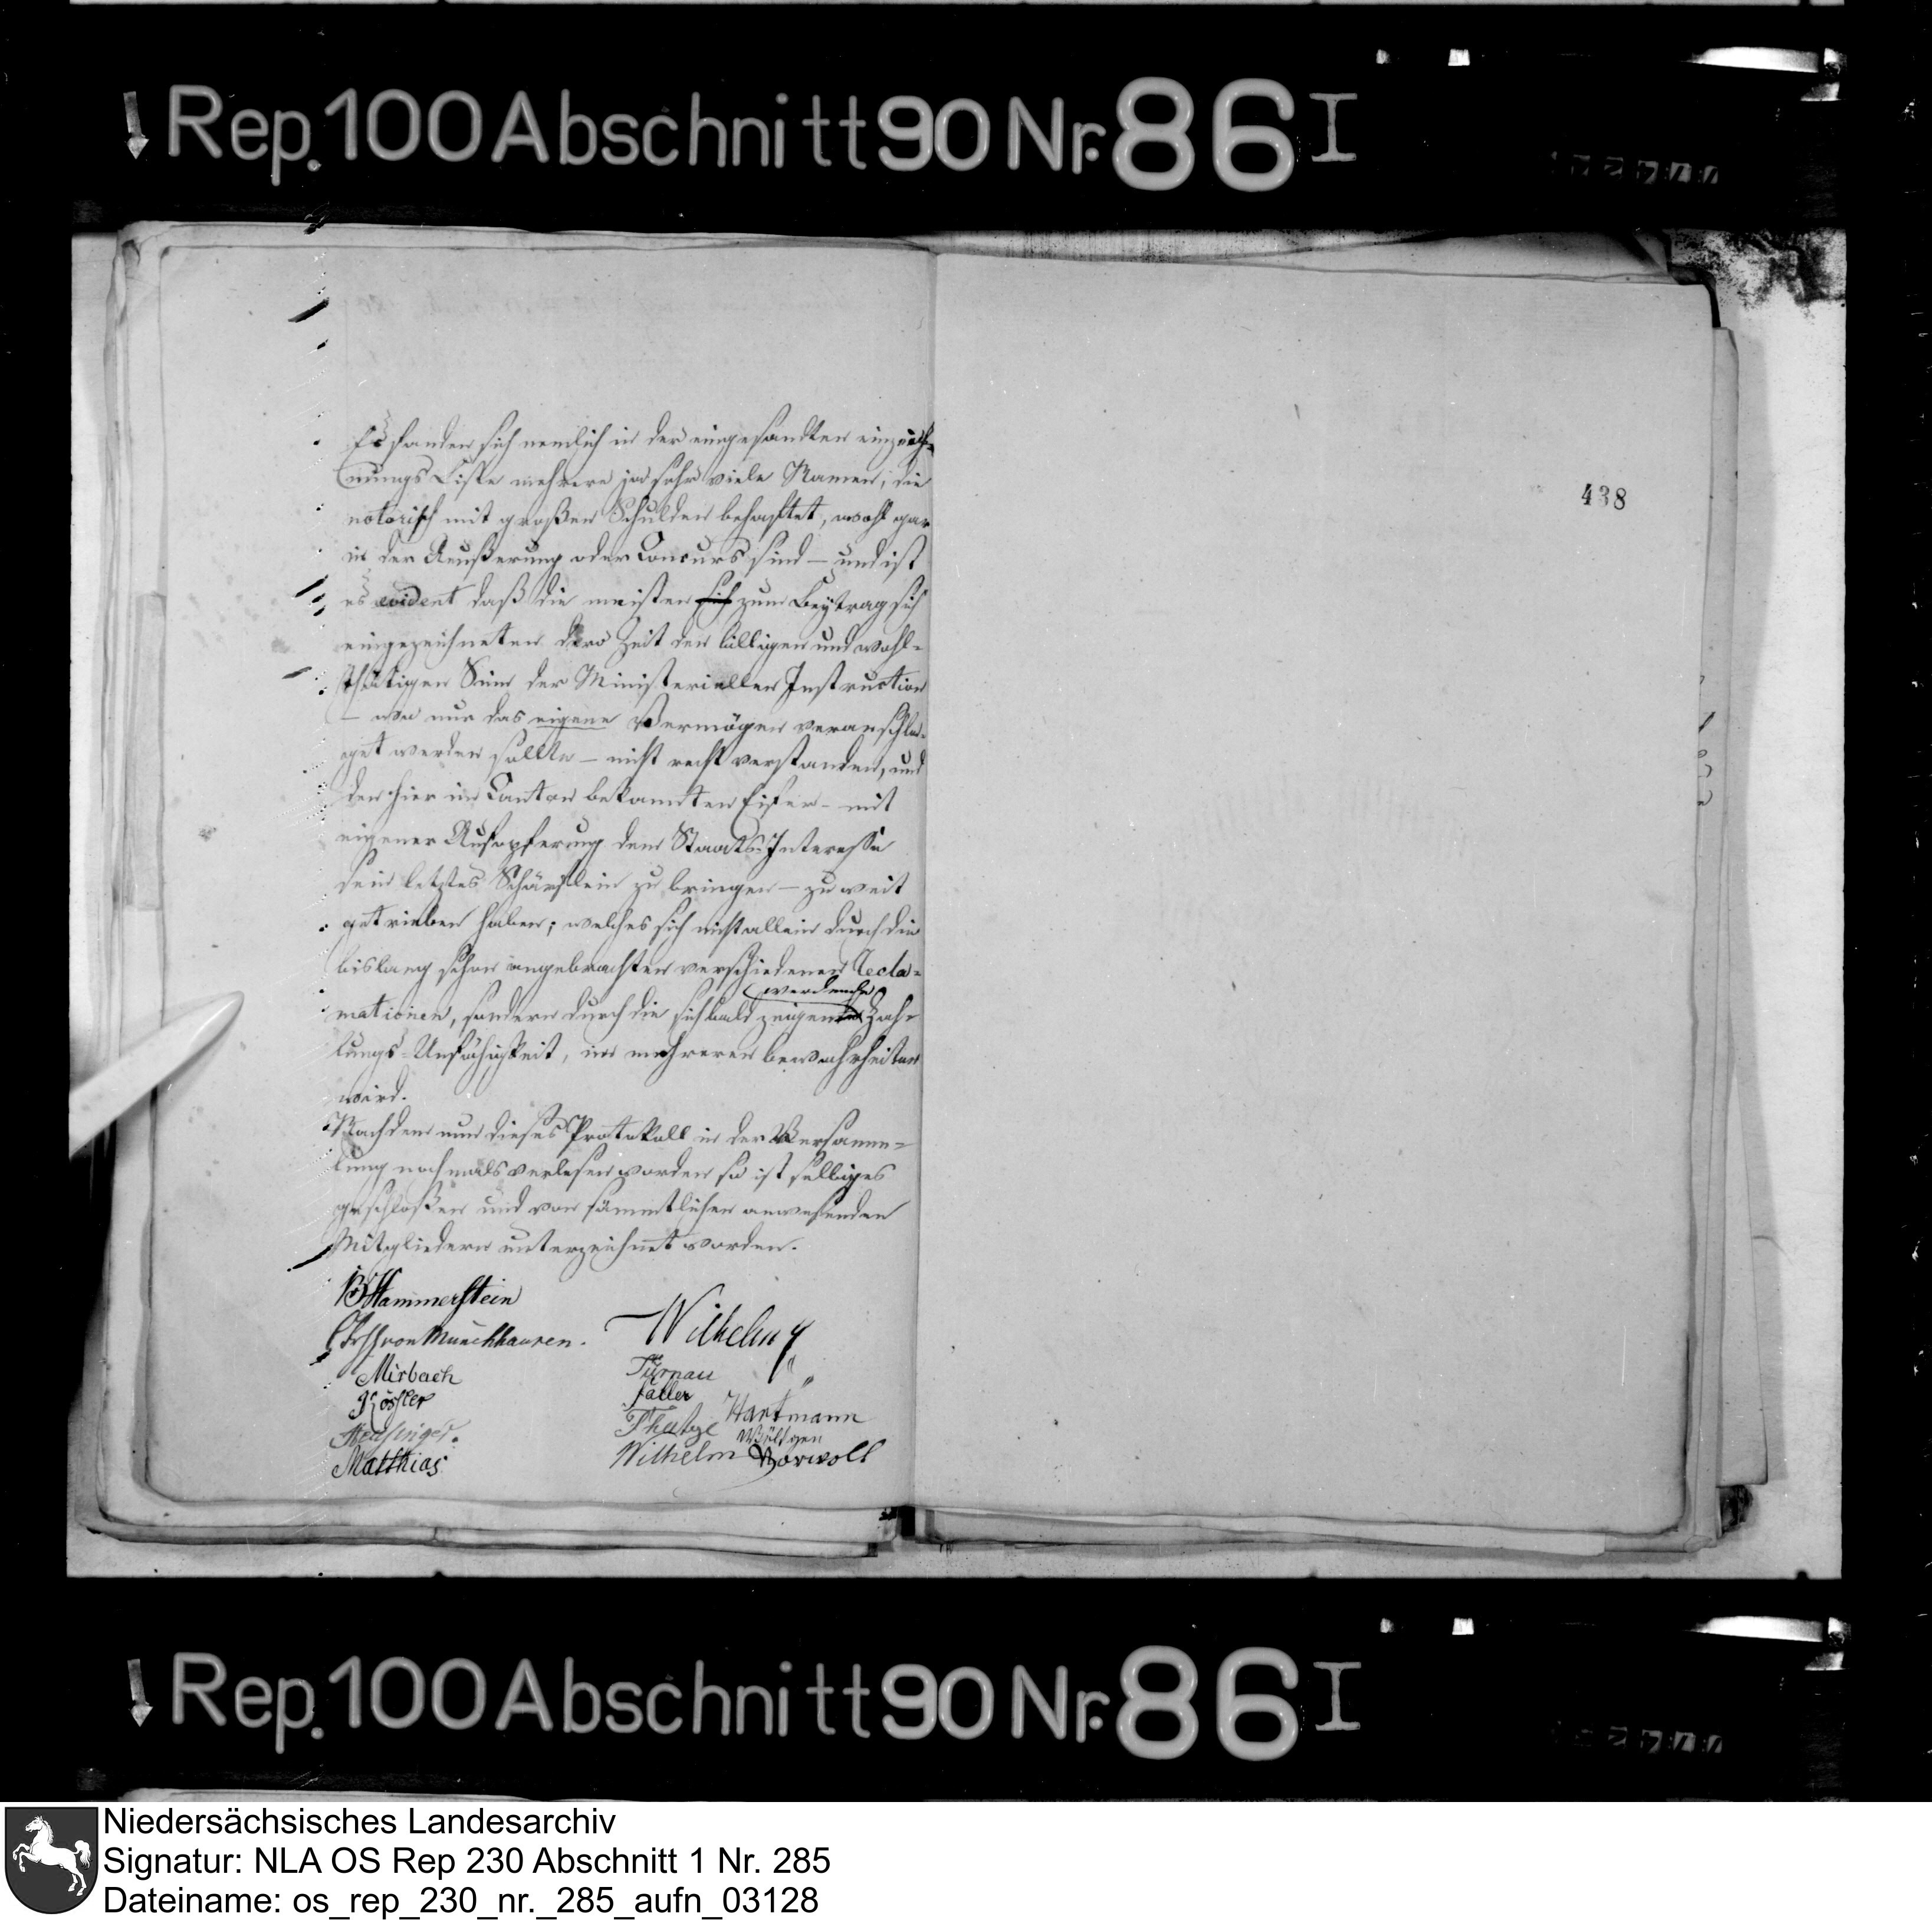 Rep. 100 Abschnitt 90 Nr. 86 I
Es fanden sich nemlich in der eingesandten einzeich-
nungs Liste mehrere ja sehr viele Namen, die
notorisch mit großen Schulden behaftet, wohl gar
in der Aeußerung oder Concurs sind – und ist
es evident daß die meisten sich zum Beytrag sich
eingezeichneten der Zeit den billigen und wohl-
thätigen Sinn der Ministeriellen Instruction
– wo nur das eigene Vermögen veranschla-
get werden sollte – nicht recht verstanden, und
den hier im Canton bekannten Eifer – mit
eigener Aufopferung dem Staats-Interesse
sein letztes Schärflein zu bringen – zu weit
getrieben haben; welches sich nicht allein durch die
bislang schon angebrachten verschiedenen Recla-
werdende
mationen, sondern durch die sich bald zeigende Zah-
lungs-Unfähigkeit, in mehreren bewahrheiten
wird.
Nachdem nun dieses Protokoll in der Versamm-
lung nochmals verlesen worden so ist selbiges
geschloßen und von sämmtlichen anwesenden
Mitgliedern unterzeichnet worden.
Hammerstein
von Münchhausen.
Wilhelmy
Mirbach
Türnau
Kösster
Hartmann
Matthias
Wilhelm
438
Rep. 100 Abschnitt 90 Nr. 86 I
Niedersächsisches Landesarchiv
Signatur: NLA OS Rep 230 Abschnitt 1 Nr. 285
Dateiname: os_rep_230_nr._285_aufn_03128